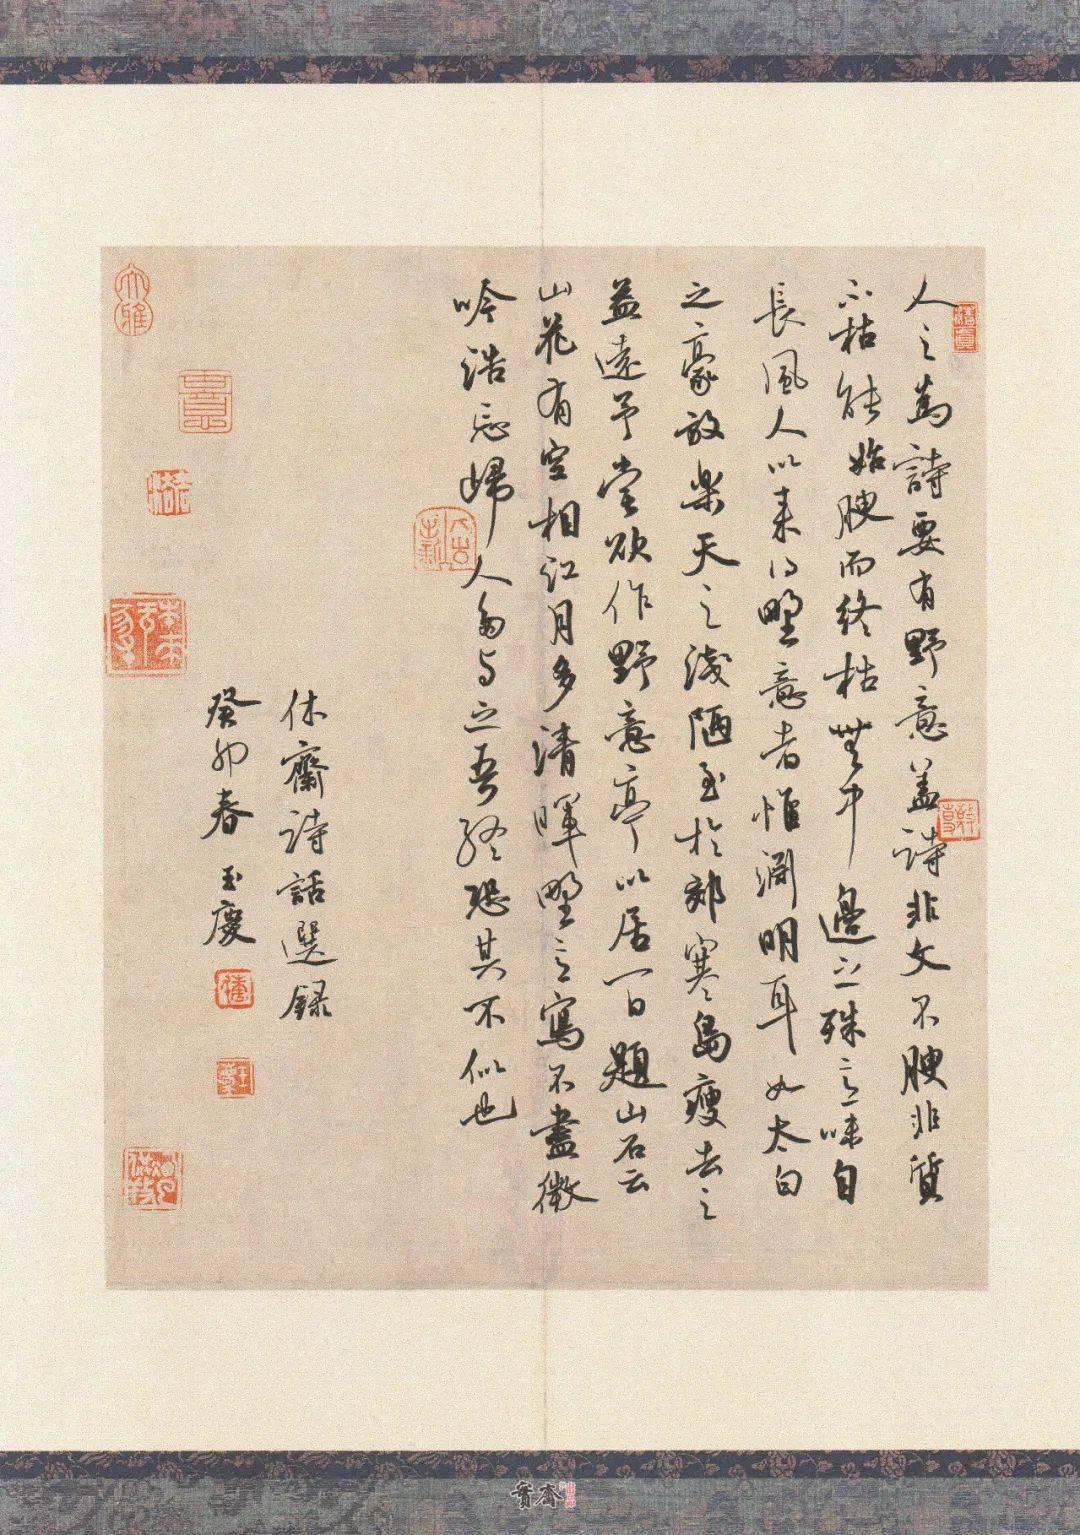 人之為詩要有野意盖詩非文不腴非質
不枯能始腴而終枯無中邊之殊意味自
長風人以来得野意者惟淵明耳如太白
之豪放楽天之淺陋至於郊寒島瘦去之
益遠予嘗欲作野意亭以居一日題山石云
山花有空相江月多清暉野意寫不盡微
吟浩忘歸人多與之吾終恐其不似也
休齋詩話選録
癸卯春 玉慶
大雅
實齋